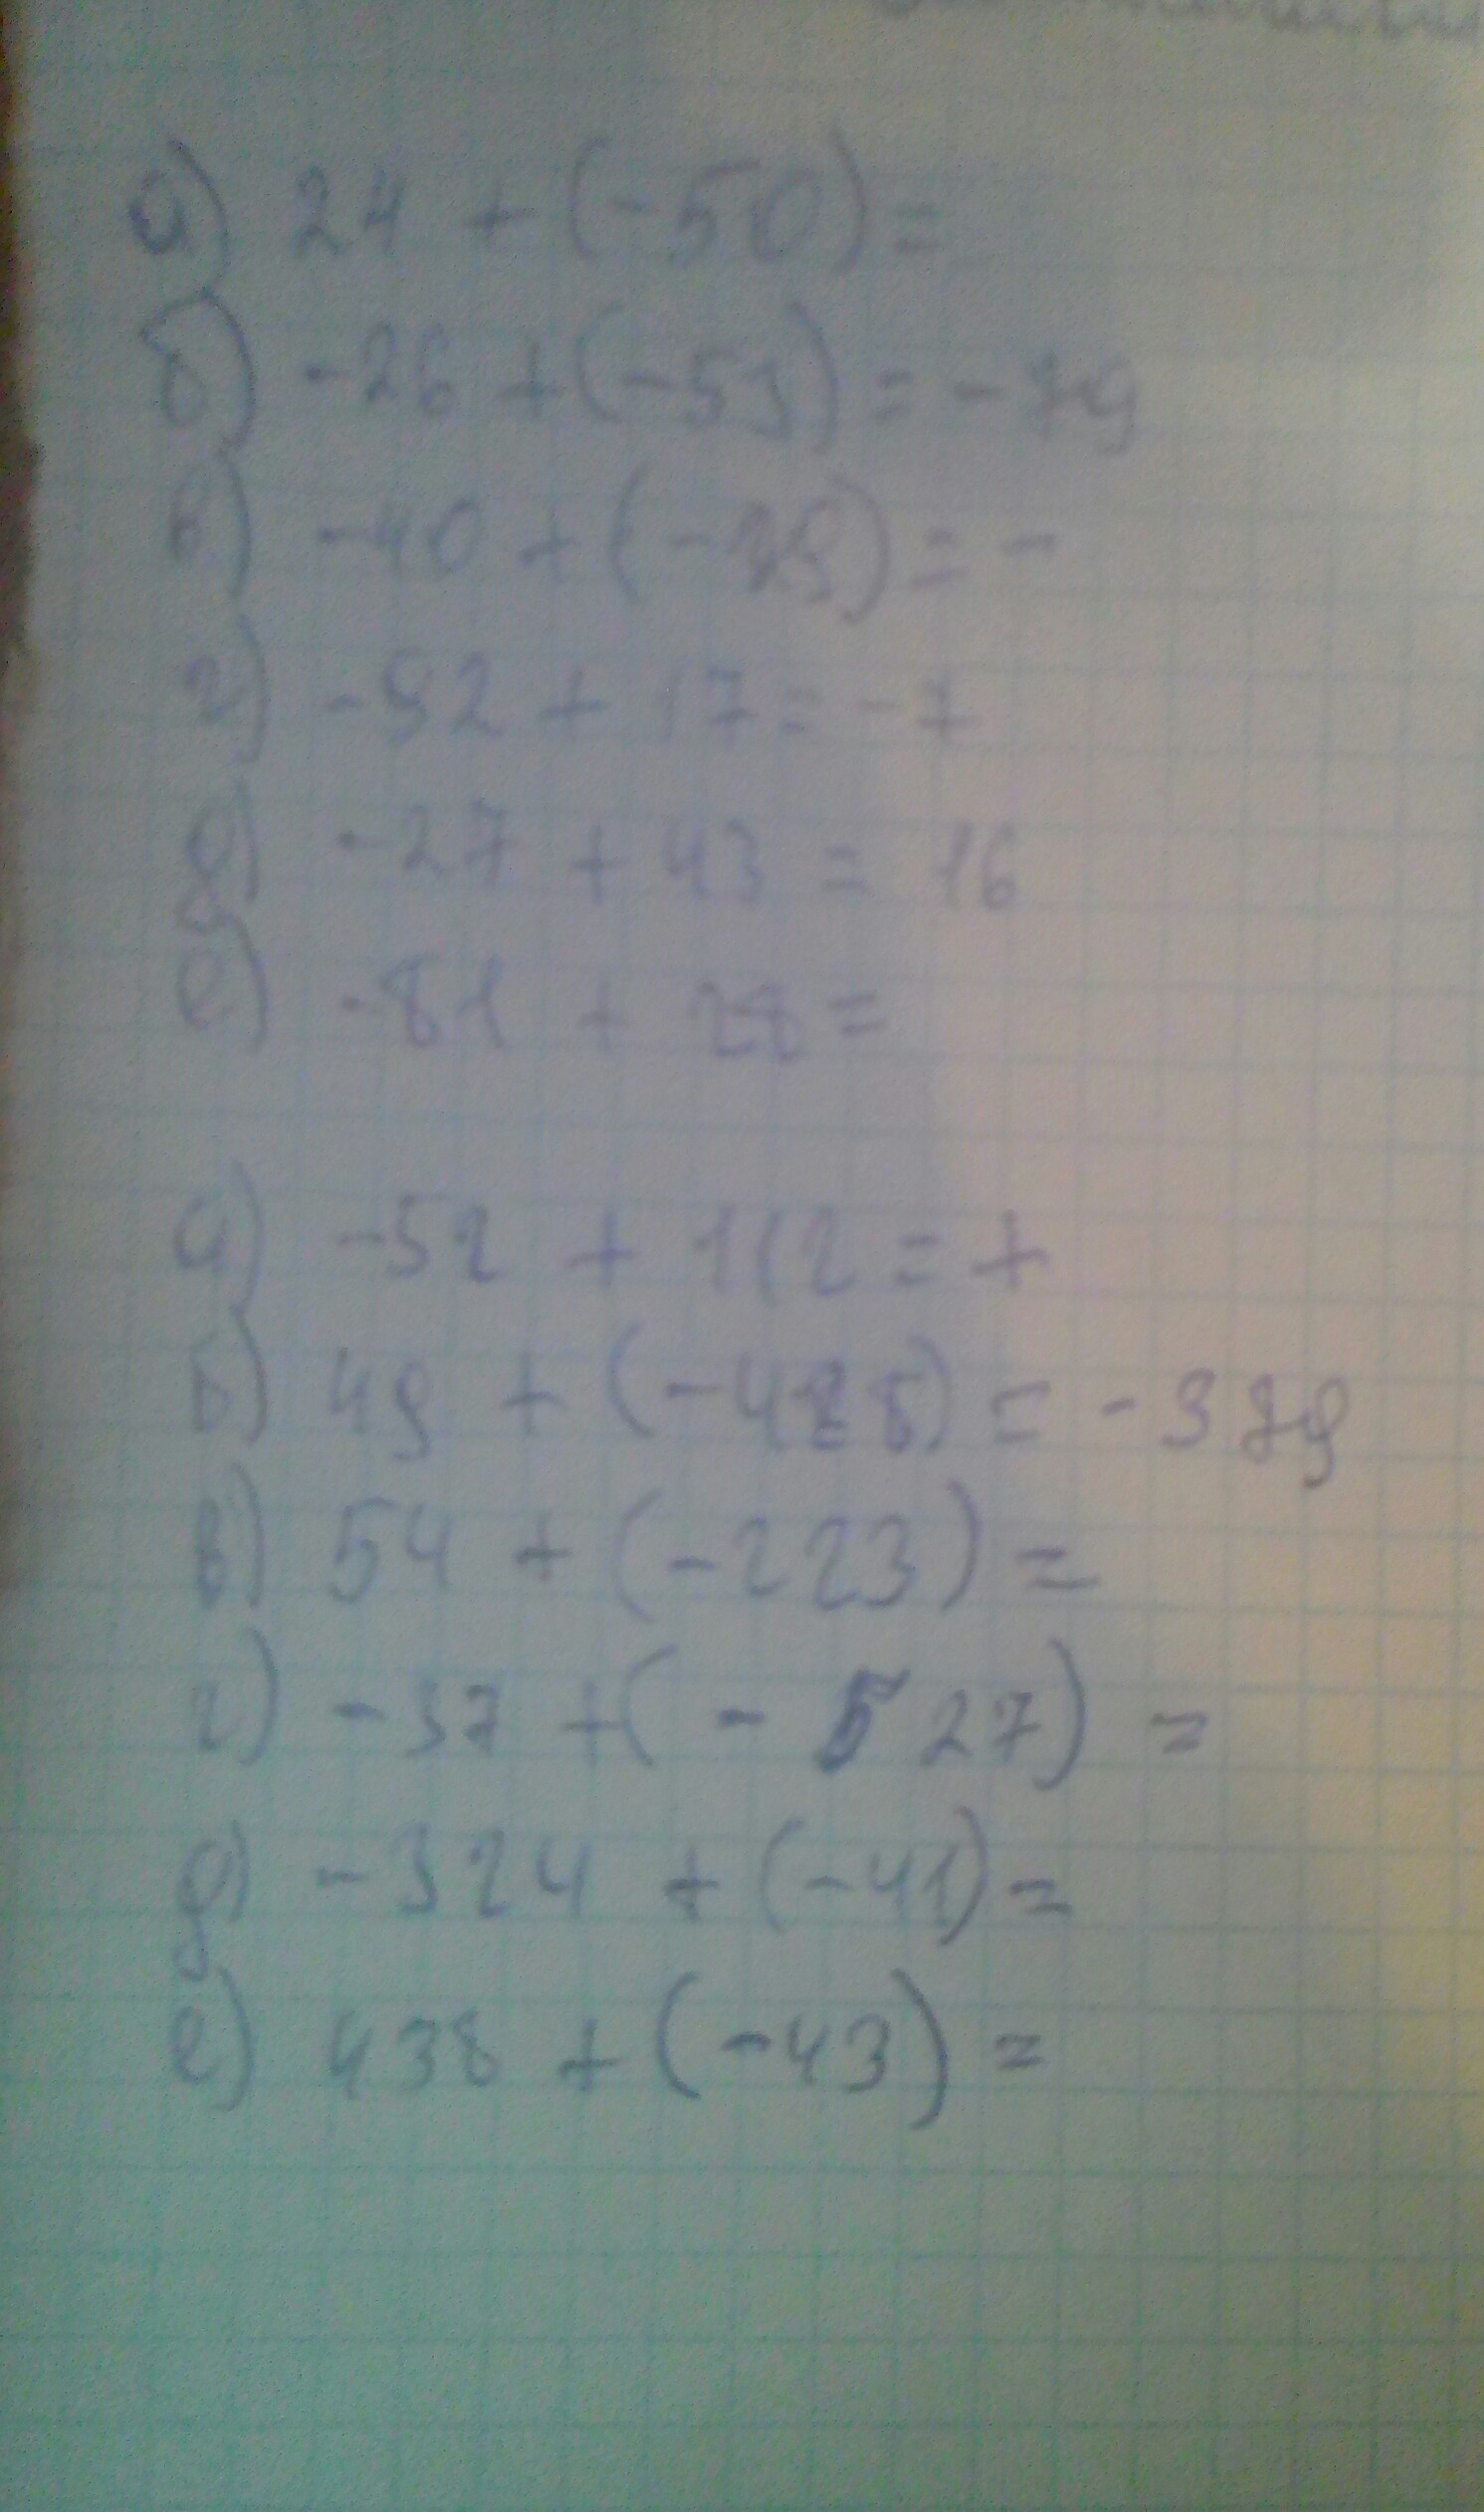 а) 24 + (-50) =
б) -26 + (-53) = -79
в) -40 + (-29) = -
г) -92 + 17 = -7
д) -27 + 43 = 16
е) -81 + 28 =
а) -52 + 112 = +
б) 49 + (-428) = -379
в) 54 + (-223) =
г) -37 + (-527) =
д) -324 + (-41) =
е) 438 + (-43) =